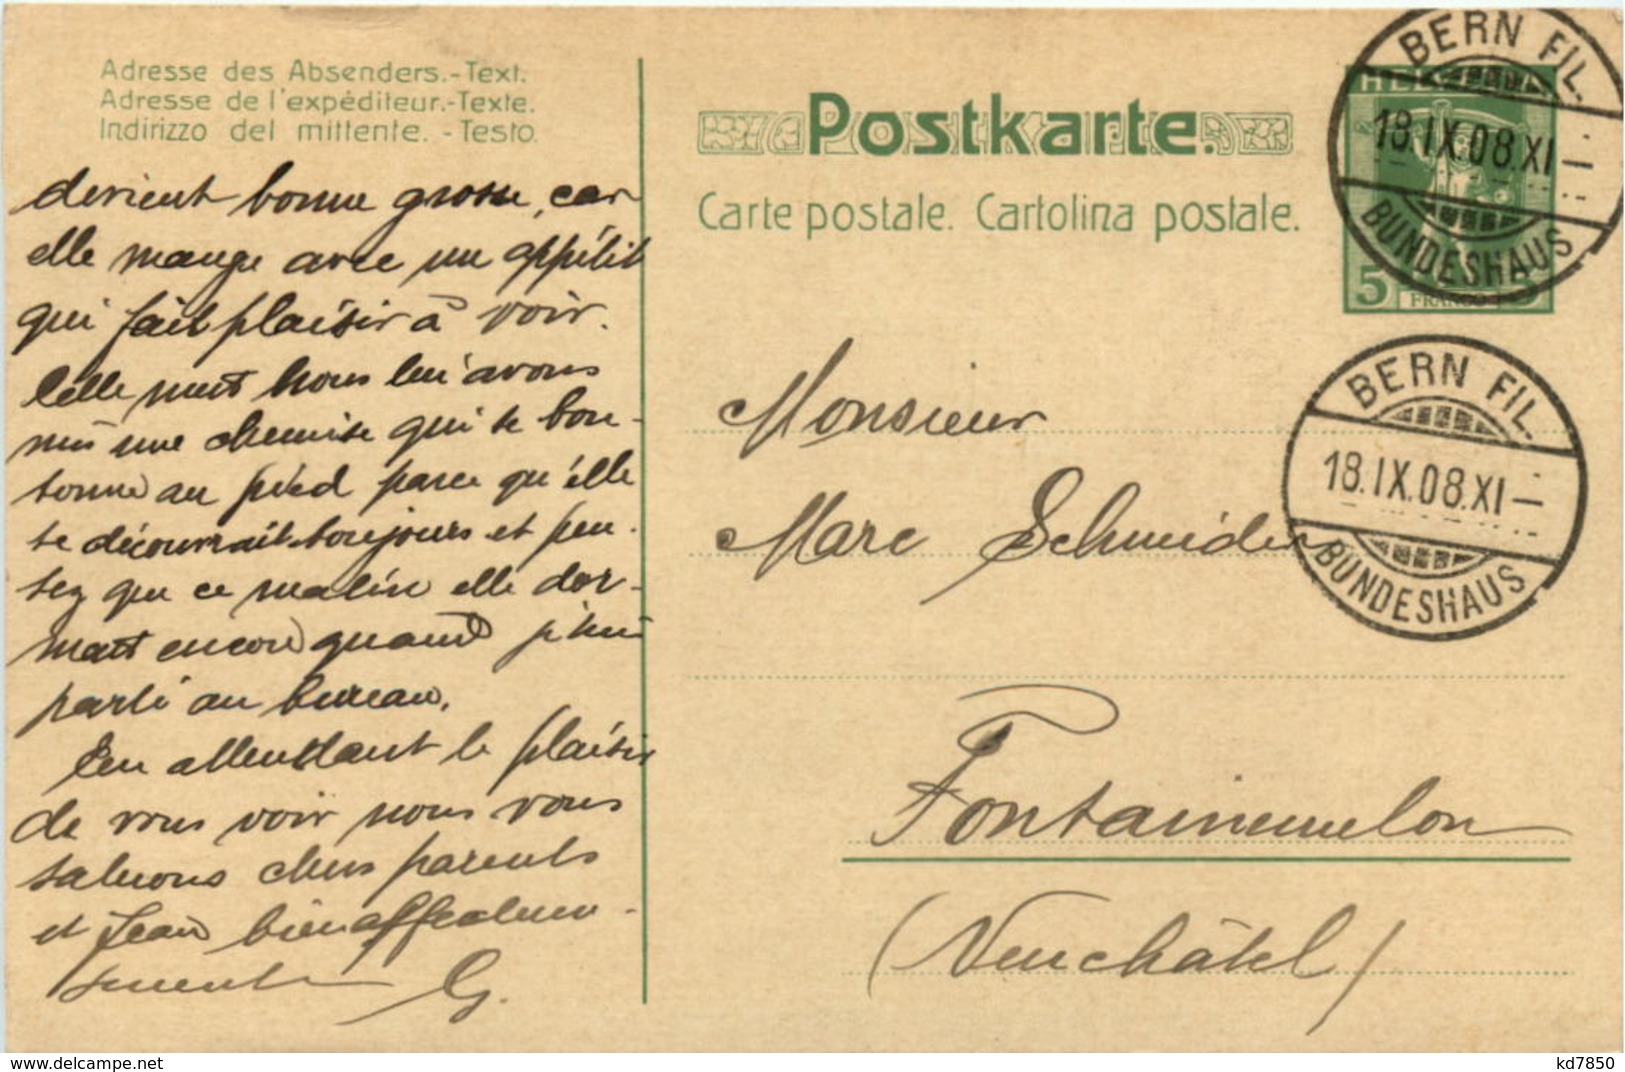 Adresse des Absenders.-Text.
Adresse de l'expéditeur.-Texte.
Indirizzo del mittente. - Testo.
devient bonne grosse, car
elle mange avec un appétit
qui fait plaisir à voir.
Cette nuit nous lui avons
mis une chemise qui se bou-
tonne au pied parce qu'elle
se découvrait toujours et pen-
sez que ce matin elle dor-
mait encore quand je suis
parti au bureau.
En attendant le plaisir
de vous voir nous vous
saluons chers parents
et Jean bien affectueu-
sement G.
Postkarte.
Carte postale. Cartolina postale.
HEL
5
FRANCO
BERN FIL.
18.IX.08.XI—
BUNDESHAUS
BERN FIL.
18.IX.08.XI—
BUNDESHAUS
Monsieur
Marc Schneider
Fontainemelon
(Neuchâtel)
www.delcampe.net
kd7850